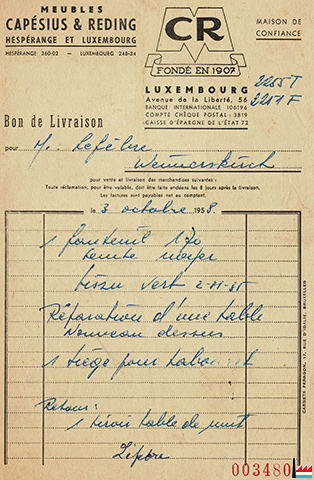 MEUBLES
CAPÉSIUS & REDING
HESPÉRANGE ET LUXEMBOURG
HESPÉRANGE 360-02 — LUXEMBOURG 248-34
CR
FONDÉ EN 1907
MAISON DE
CONFIANCE
LUXEMBOURG
Avenue de la Liberté, 56
BANQUE INTERNATIONALE 106196
COMPTE CHÈQUE POSTAL: 3819
CAISSE D'ÉPARGNE DE L'ÉTAT 72
Bon de Livraison
pour M. Lefèbre
pour vente et livraison des marchandises suivantes:
Toute réclamation, pour être valable, doit être faite endéans les 8 jours après la livraison.
Les factures sont payables net au comptant.
le 3 octobre 1958.
1 fauteuil 170
teinte noyer
tissu vert
Réparation d'une table
Nouveau dessus
1 siège pour tabouret
Retour:
1 tiroir table de nuit
003480
CARNETS PARAGON, 17, RUE D'IDALIE, BRUXELLES